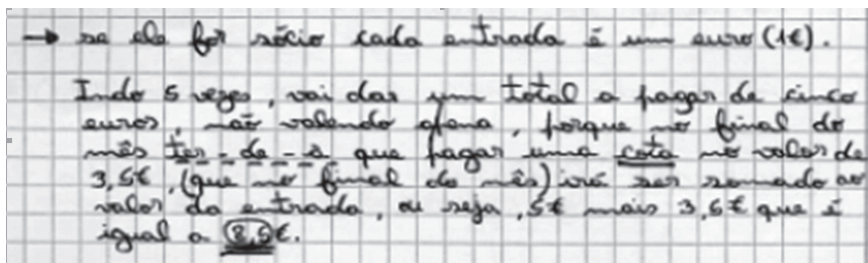 → se ele for sócio cada entrada é um euro (1€).
Indo 5 vezes, vai dar um total a pagar de cinco
euros, não valendo apena, porque no final do
mês ter-de-á que pagar uma cota no valor de
3,5€, (que no final do mês) irá ser somado ao
valor da entrada, ou seja, 5€ mais 3,5€ que é
igual a 8,5€.